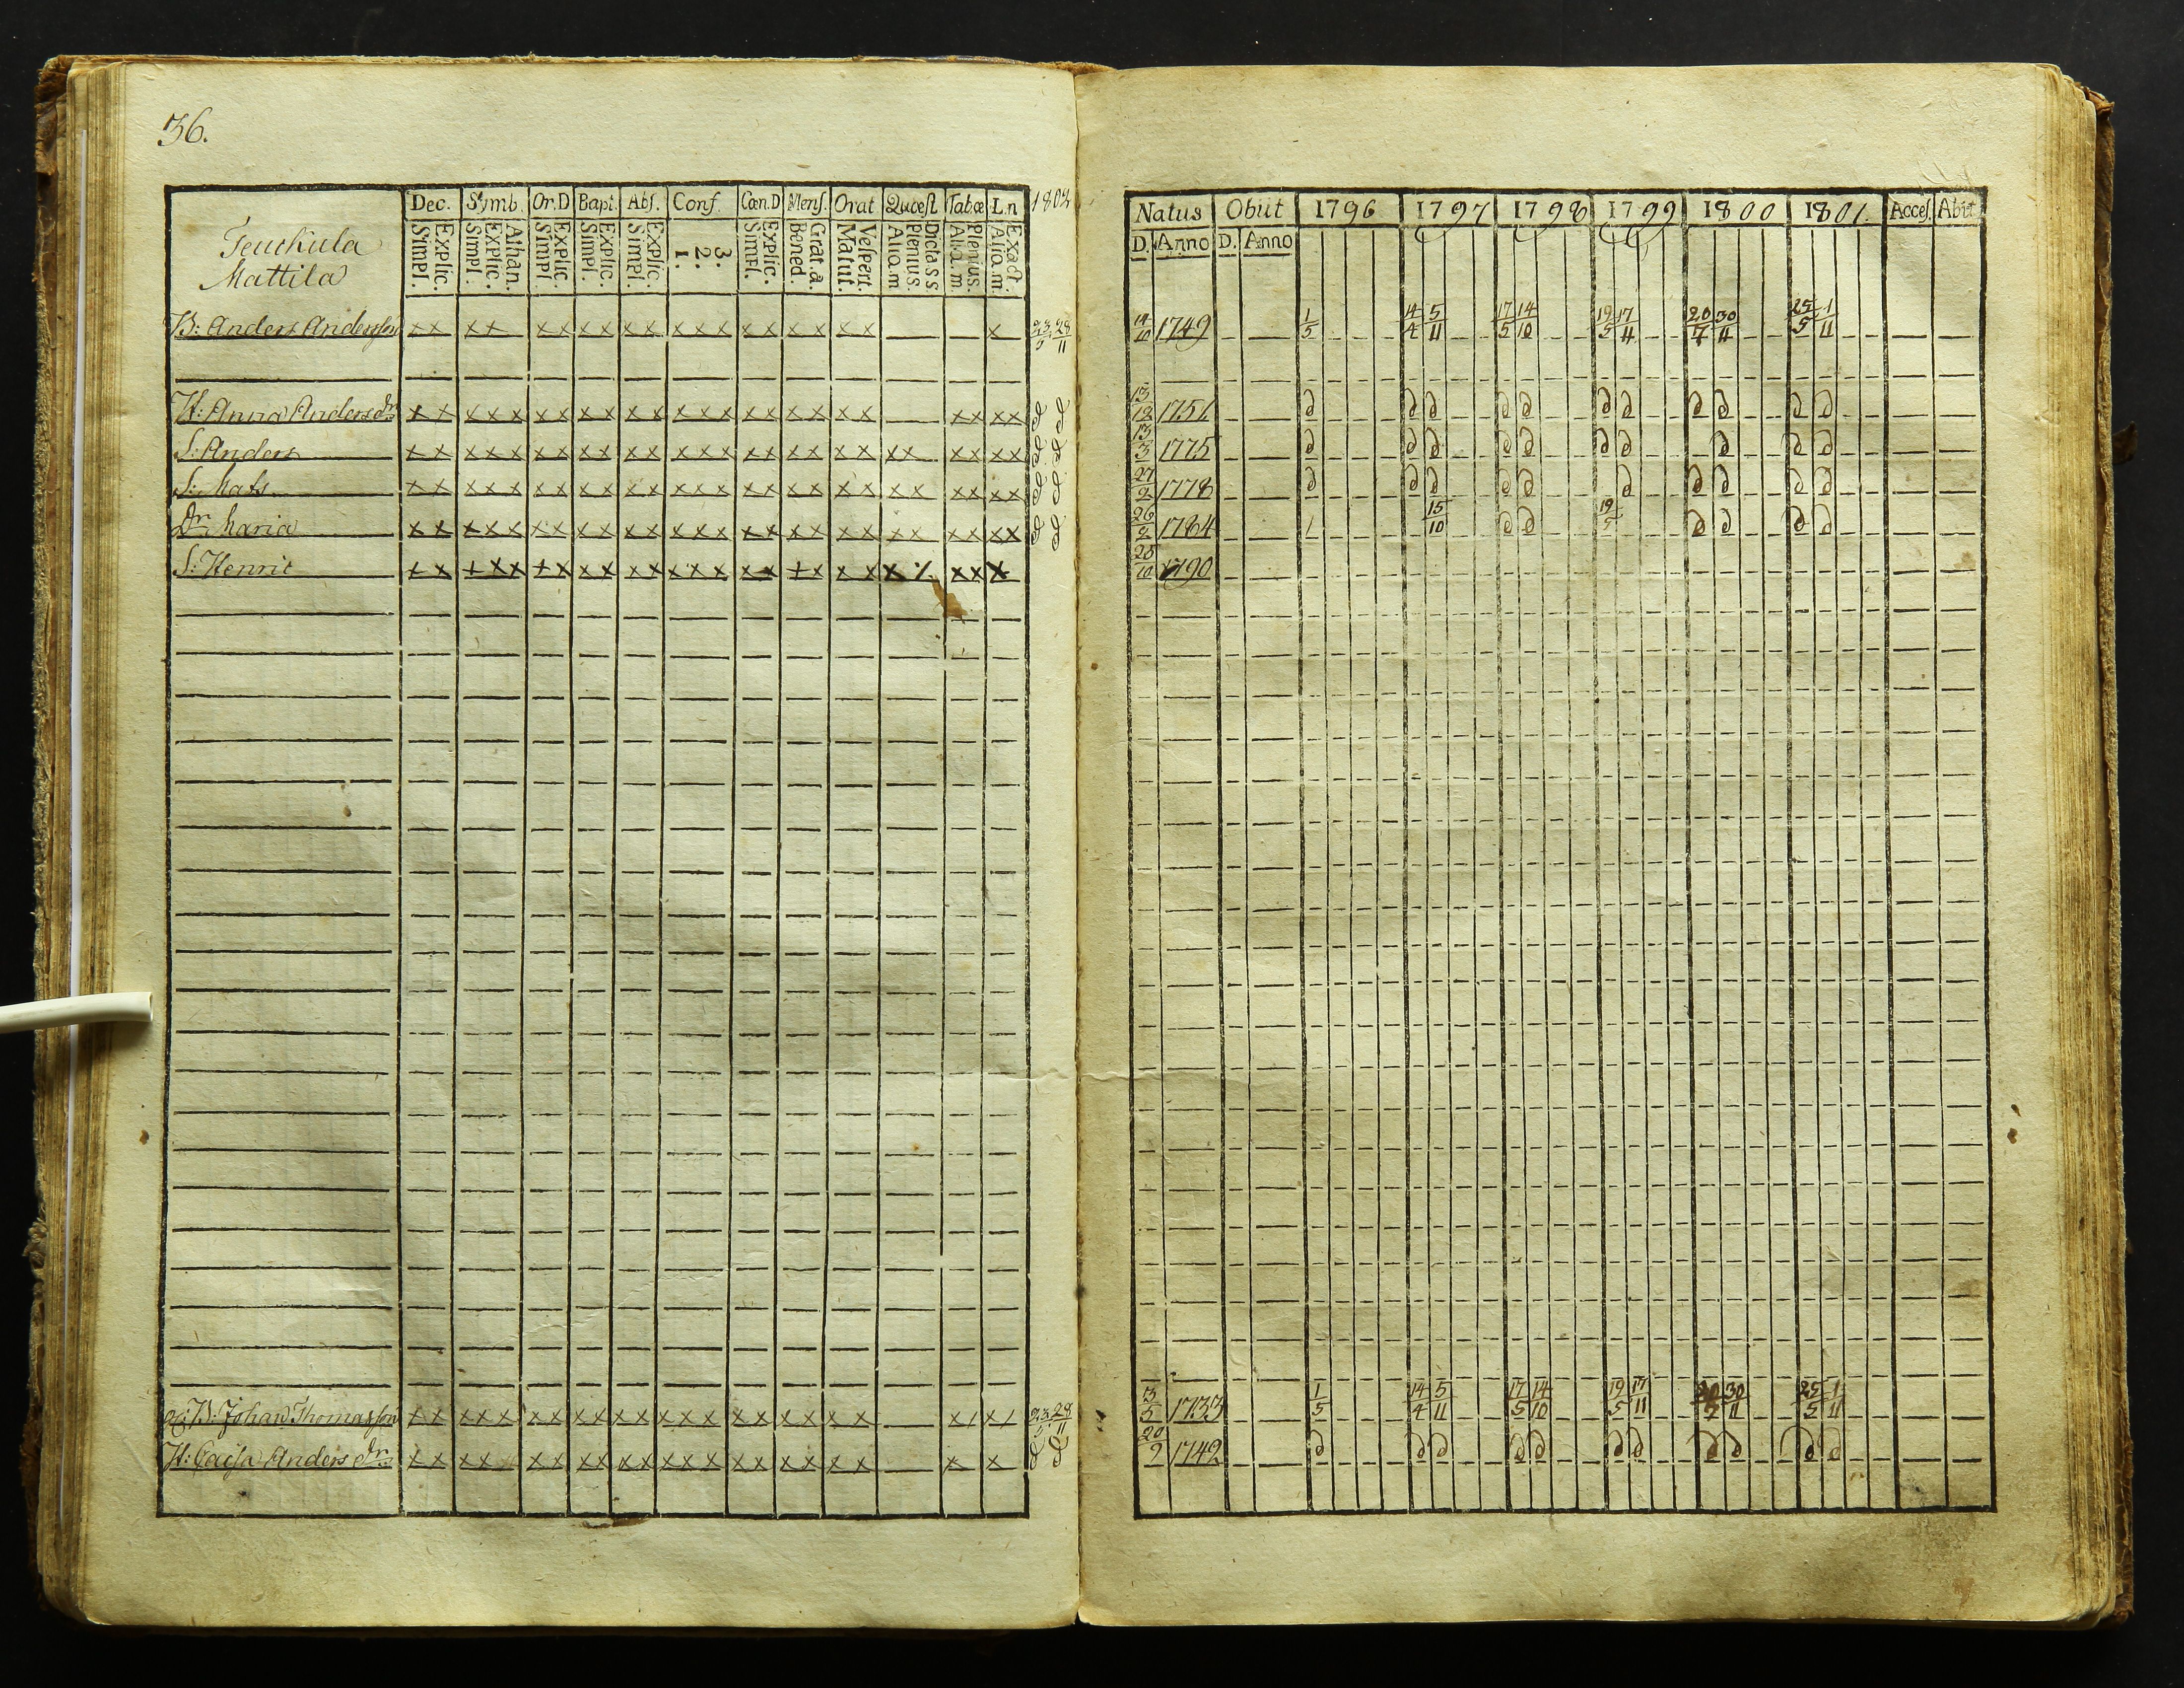 36.
Dec. Symb. Or.D Bapt. Abs. Conf. Cœn.D Mens. Orat. Quæst Tabœ L.n 1802
Mattila
Explic. Simpl. Athan. Explic. Simpl. Explic. Simpl. Explic. Simpl. Explic. Simpl. 3. 2. 1. Explic. Simpl. Grat. a. Bened. Vespert. Matut. Dicta S S Plenius. Aliq. m Plenius. Aliq. m. Exact. Aliq. m.
B: Anders Andersson x x x x x x x x x x x x x x x x x x x x 23/5 28/11
H: Anna Anders dr x x x x x x x x x x x x x x x x x x x x x x x x x d d
S: Anders x x x x x x x x x x x x x x x x x x x x x x x x x x x d d
S: Mats x x x x x x x x x x x x x x x x x x x x x x x x x x x d d
Dr Maria x x x x x x x x x x x x x x x x x x x x x x x x x x x d d
S: Henric x x x x x x x x x x x x x x x x x x x x x x x x x
B: Johan Thomasson x x x x x x x x x x x x x x x x x x x x x x x / x / 23/5 28/11
H: Caisa Anders dr x x x x x x x x x x x x x x x x x x x x x x x x d d
Natus Obiit 1796 1797 1798 1799 1800 1801. Acces. Abiit
D. Anno D. Anno
14/10 1749 1/5 14/4 5/11 17/5 14/10 19/5 17/11 20/7 30/11 25/5 1/11
13/12 1751 d d d d d d d d d d d
13/3 1775 d d d d d d d d d d
27/2 1778 d d d d d d d d d d
26/2 1784 1 15/10 d d 19/5 d d d d
28/10 1790
13/5 1733 1/5 14/4 5/11 17/5 14/10 19/5 17/11 20/7 30/11 25/5 1/11
20/2 1742 d d d d d d d d d d d